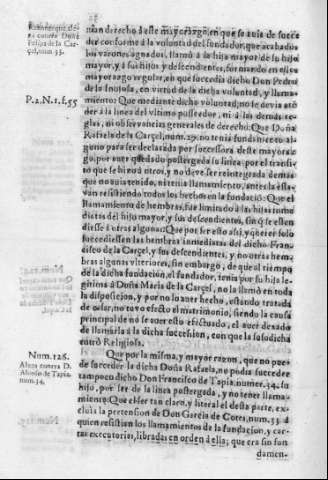 nan derecho à este mayorazgo, en que se auia de succe-
der conforme à la voluntad del fundador, que acabados
los varones agnados, llamò à la hija mayor de su hijo
mayor, y à sus hijos y descendientes, formando en ellos
mayorazgo regular, en que sucedia dicho Don Pedro
de la Inojosa, en virtud de la dicha voluntad, y llama-
miento: Que mediante dicho voluntad, no se devia aten-
der à la linea del vltimo posseedor, ni à las demàs re-
glas, ni observancias generales de derecho: Que Doña
Rafaela de la Carçel, num. 29. no tenia fundamento al-
guno para ser declarada por successora deste mayoraz-
go, por auer quedado postergada su linea, por el transi-
to que se hizo à otros, y no deve ser reintegrada demàs
que no auia tenido, ni tenia llamamiento, antes la esta-
van resistiendo todos los hechos en la fundacion: Que el
llamamiento de hembras, fue limitado à las hijas inme
diatas del hijo mayor, y sus descendientes, sin que se esten
diesse à otras algunas: Que por ser esto assi, y querer solo
succediessen las hembras inmediatas del dicho Fran-
cisco de la Carçel, y sus descendientes, y no otras hem-
bras algunas vlteriores, sin embargo, de que al tiempo
de la dicha fundacion, el fundador, tenia por su hija le-
gitima à Doña Maria de la Carçel, no la llamò en toda
la disposicion, y por no lo auer hecho, estando tratada
de casar, no tuvo efecto el matrimonio, siendo la causa
principal de no se auer esto efectuado, el auer dexado
de llamarla à la dicha succession, con que la susodicha
entrò Religiosa.
Que por la misma, y mayor razon, que no pue-
de succeder la dicha Doña Rafaela, no podia succeder
tampoco dicho Don Francisco de Tapia, numer. 34. su
hijo, por ser de la linea postergada, y no tener llama-
miento: Que el ser tan claro, y literal el desta parte, ex-
cluía la pretension de Don Garcia de Cotes, num. 33. à
quien resistian los llamamientos de la fundacion, y car-
tas executorias, libradas en orden à ella; que era sin fun
damen-
P. 2. N. 1. f. 55
Num. 126.
Alega contra D.
Alonso de Tapia,
num. 34.